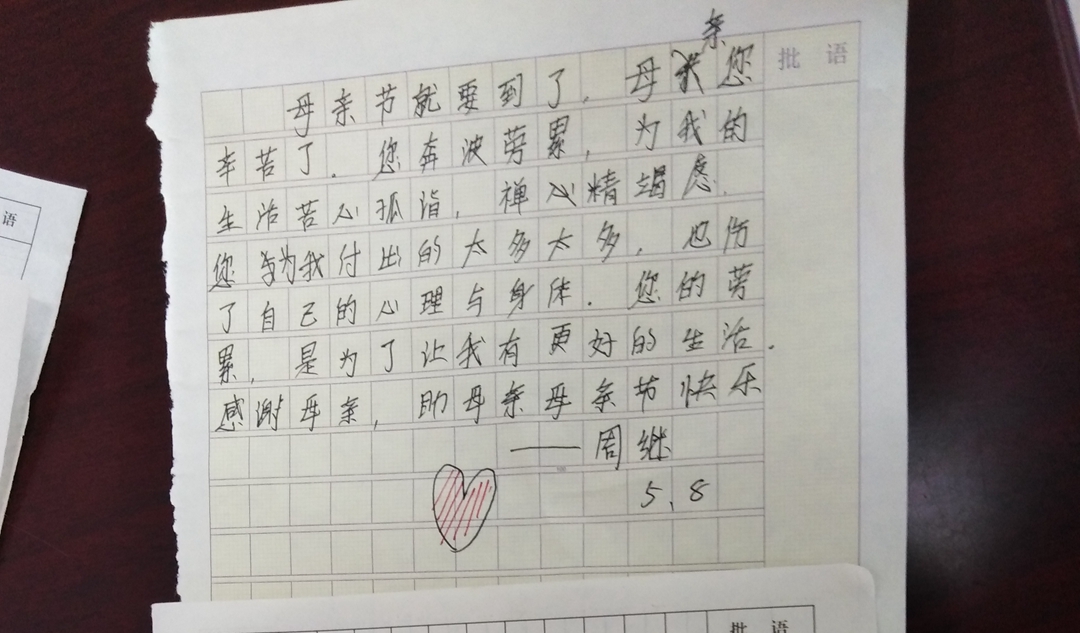 母亲节就要到了，母亲您
辛苦了．您奔波劳累，为我的
生活苦心孤诣，禅心精竭虑．
您为我付出的太多太多，也伤
了自己的心理与身体．您的劳
累，是为了让我有更好的生活．
感谢母亲，助母亲母亲节快乐
——周继
5.8
批语
语
批语